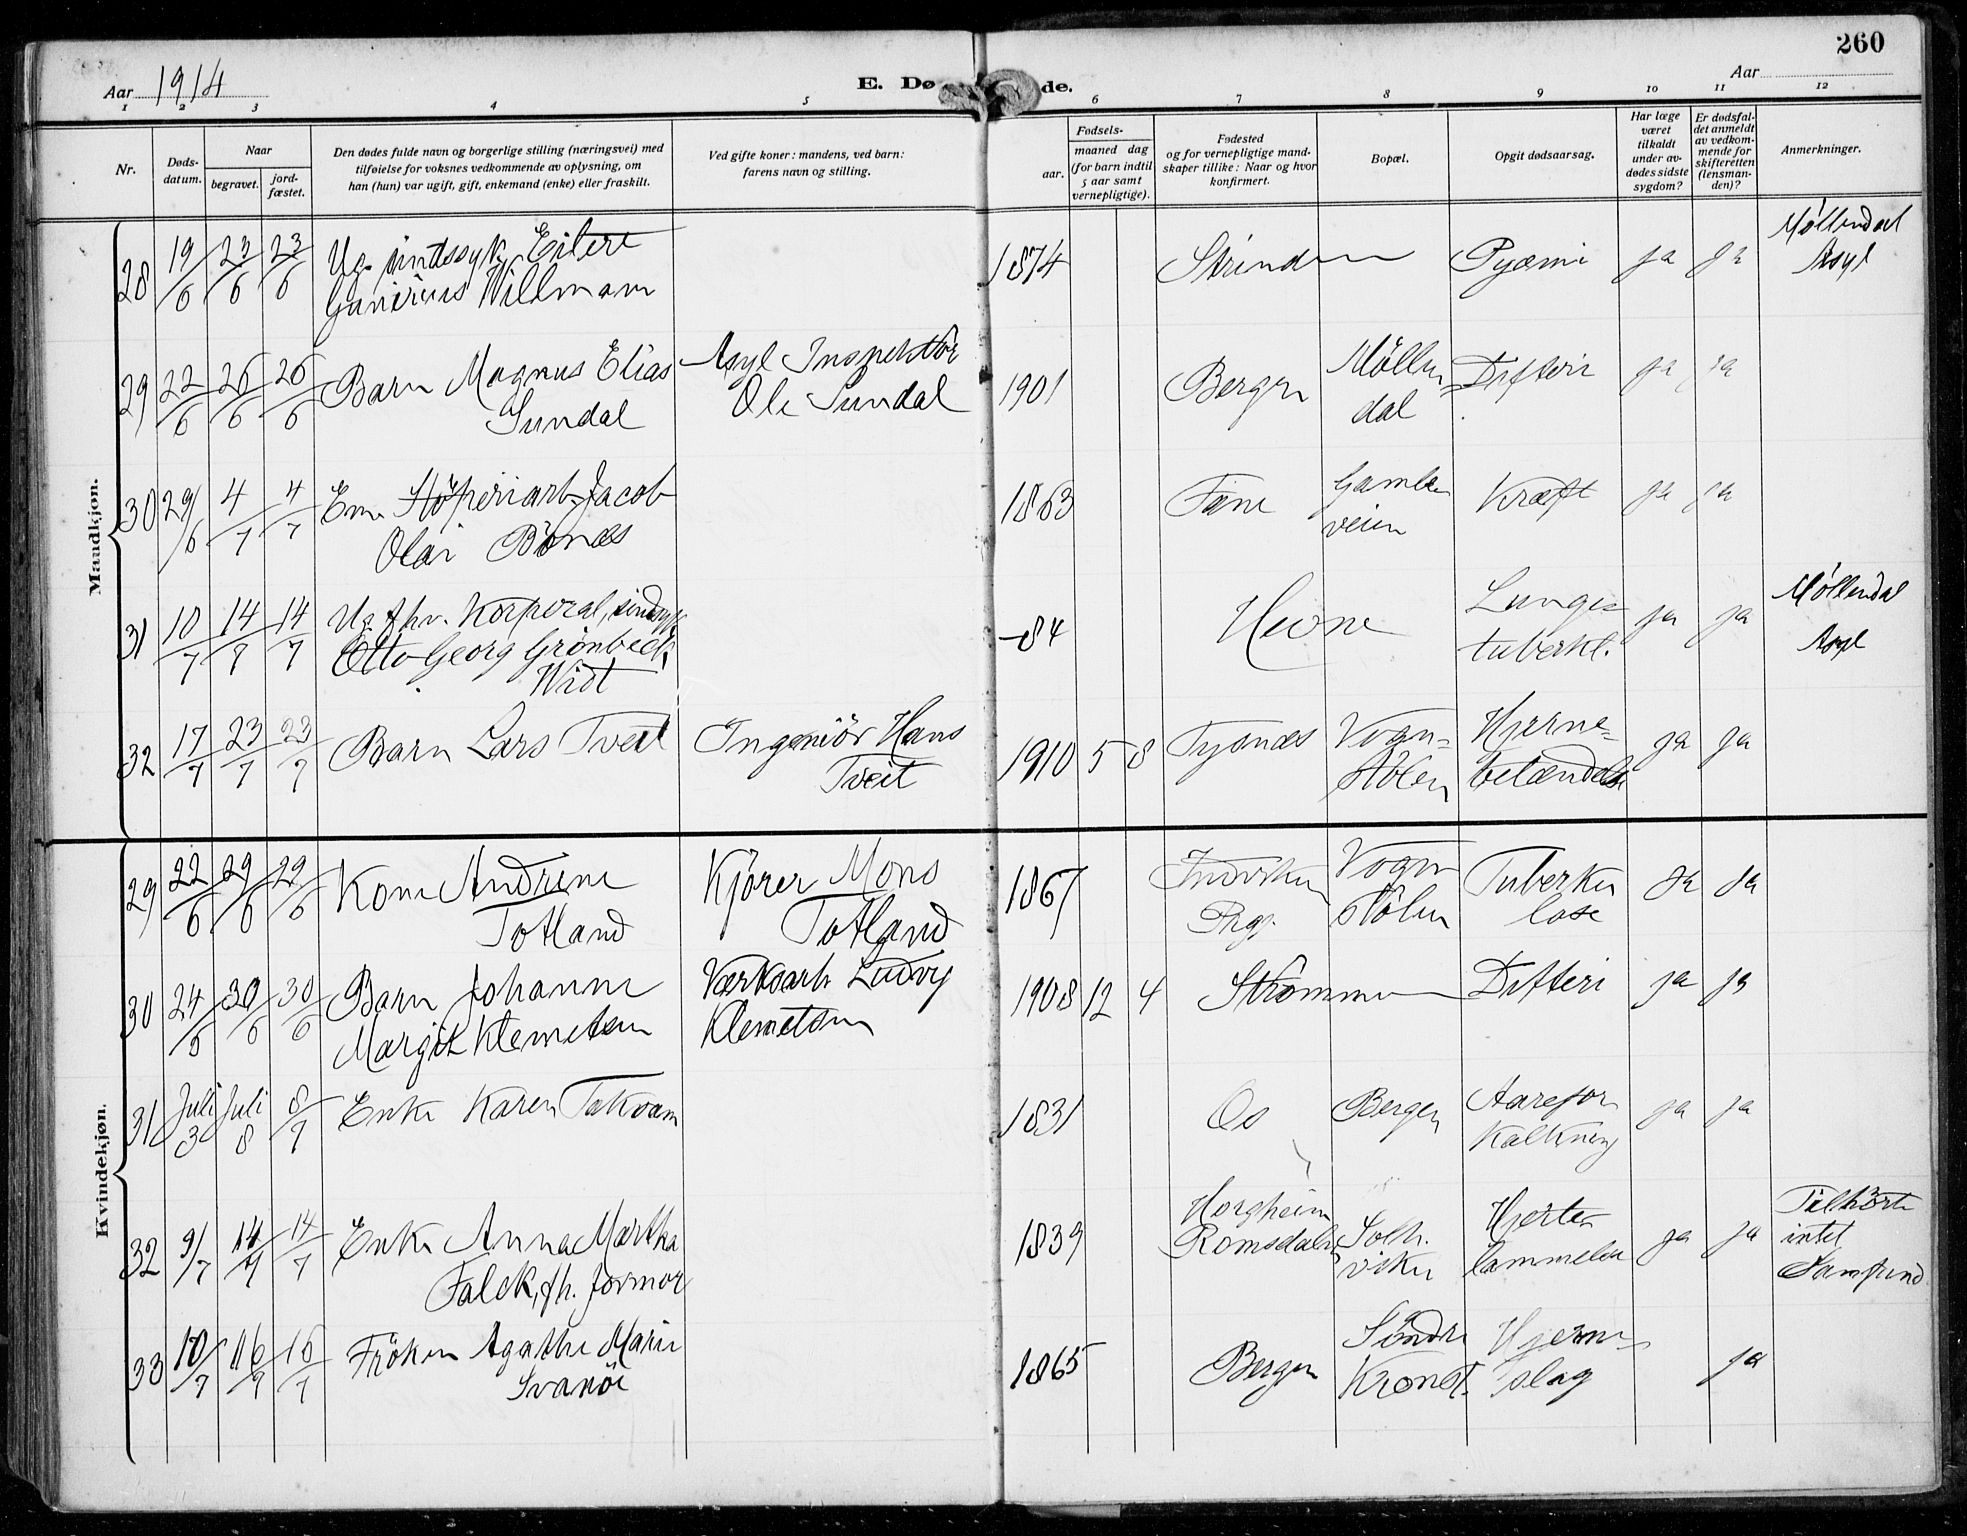 260
Aar 1914
E. Dø de.
Aar
1 2 3 4 5 6 7 8 9 10 11 12
Nr.
Døds-
datum.
Naar
begravet.
jord-
fæstet.
Den dødes fulde navn og borgerlige stilling (næringsvei) med
tilføielse for voksnes vedkommende av oplysning, om
han (hun) var ugift, gift, enkemand (enke) eller fraskilt.
Ved gifte koner: mandens, ved barn:
farens navn og stilling.
Fødsels-
aar.
maaned dag
(for barn indtil
5 aar samt
vernepligtige).
Fødested
og for vernepligtige mand-
skaper tillike: Naar og hvor
konfirmert.
Bopæl.
Opgit dødsaarsag.
Har læge
været
tilkaldt
under av-
dødes sidste
sygdom?
Er dødsfal-
det anmeldt
av vedkom-
mende for
skifteretten
(lensman-
den)?
Anmerkninger.
Maudkjøn.
28 19/6 23/6 23/6 Ug. sindssyk Eilert
Willmann
1874 Strinden Pyæmi ja ja Møllendal
Asyl
29 22/6 26/6 26/6 Barn Magnus Elias
Sundal
Asyl Inspektör
Ole Sundal
1901 Bergen Møllen
dal
Difteri ja ja
30 29/6 4/7 4/7 Em. Støperiarb. Jacob
Olai Bönæs
1863 Fane Gamle
veien
Kræft ja ja
31 10/7 14/7 14/7 Ug. fhv. Korporal, sindssyk
Otto Georg Grönbeck
Widt
-84 Hevne Lunge
tuberkl. ja ja Møllendal
Asyl
32 17/7 23/7 23/7 Barn Lars Tveit
Ingeniör Hans
Tveit
1910 5 8 Tysnæs Vogn=
stölen
Hjerne=
betændelse
ja ja
Kvindekjøn.
29 22/6 29/6 29/6 Kone Andrine
Totland
Kjörer Mons
Totland
1867 Indviken
Prgj.
Vogn
stölen
Tuberku
lose
Ja Ja
30 24/6 30/6 30/6 Barn Johanne
Margit Klemetsen
Værksarb. Ludvig
Klemetsen
1908 12 4 Strømmen Difteri ja ja
31 Juli 3 Juli 8 8/7 Enke Karen Takvam
1831 Os Bergen Aarefor
kalkning
ja ja
32 9/7 14/7 14/7 Enke Anna Martha
Falck, fh. Jormor
1839 Horgheim
Romsdalen
Solh.
viken
Hjerte
lammelse
ja ja Tilhörte
intet
Samfund
33 10/7 16/7 16/7 Fröken Agathe Marie
Svanöe
1865 Bergen Söndre
Kronst.
Hjerne
slag
ja